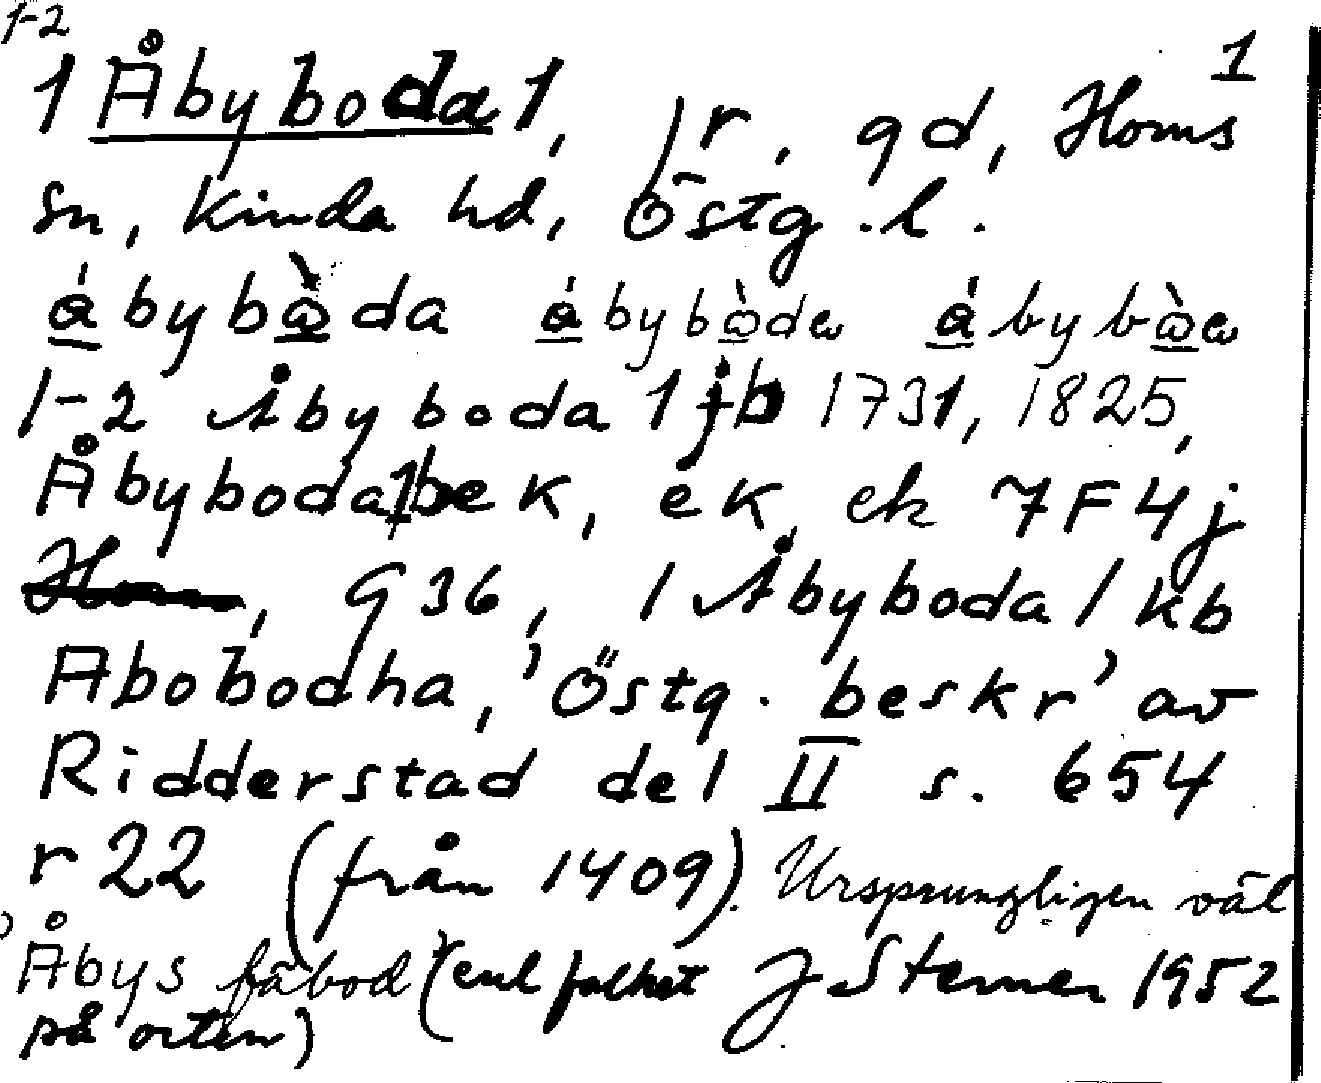 1-2
1 Åbyboda 1, )r, gd, Horns 1
sn, Kinda hd, Östg.l.
á̱bybò̱da á̱bybò̱da á̱bybò̱a
1-2 Åbyboda 1 jb 1731, 1825,
Åbyboda 1 bek, ek, ek 7F4j
Horn, g 36, 1 Åbyboda 1 kb
Abobodha, 'Östg. beskr' av
Ridderstad del II s. 654
r 22 (från 1409). Ursprungligen väl
Åbys fäbod (enl folket
på orten) J Sterner 1952